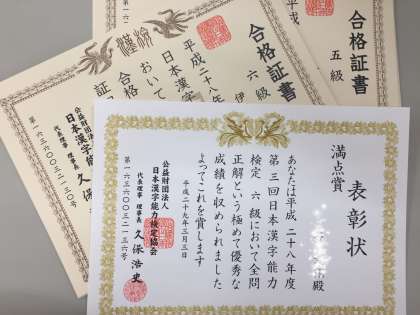 表彰状
満点賞
殿
あなたは平成二十八年度
第三回日本漢字能力
検定 六級において全問
正解という極めて優秀な
成績を収められました
よってこれを賞します
平成二十九年三月三日
公益財団法人
日本漢字能力検定協会
代表理事 理事長 久保浩史
合格証書
五級
平成
合格証書
六級
伊
平成二十八年
日本漢字
において
合格
証
公益財団法人
日本漢字能
代表理事 理事長 久保